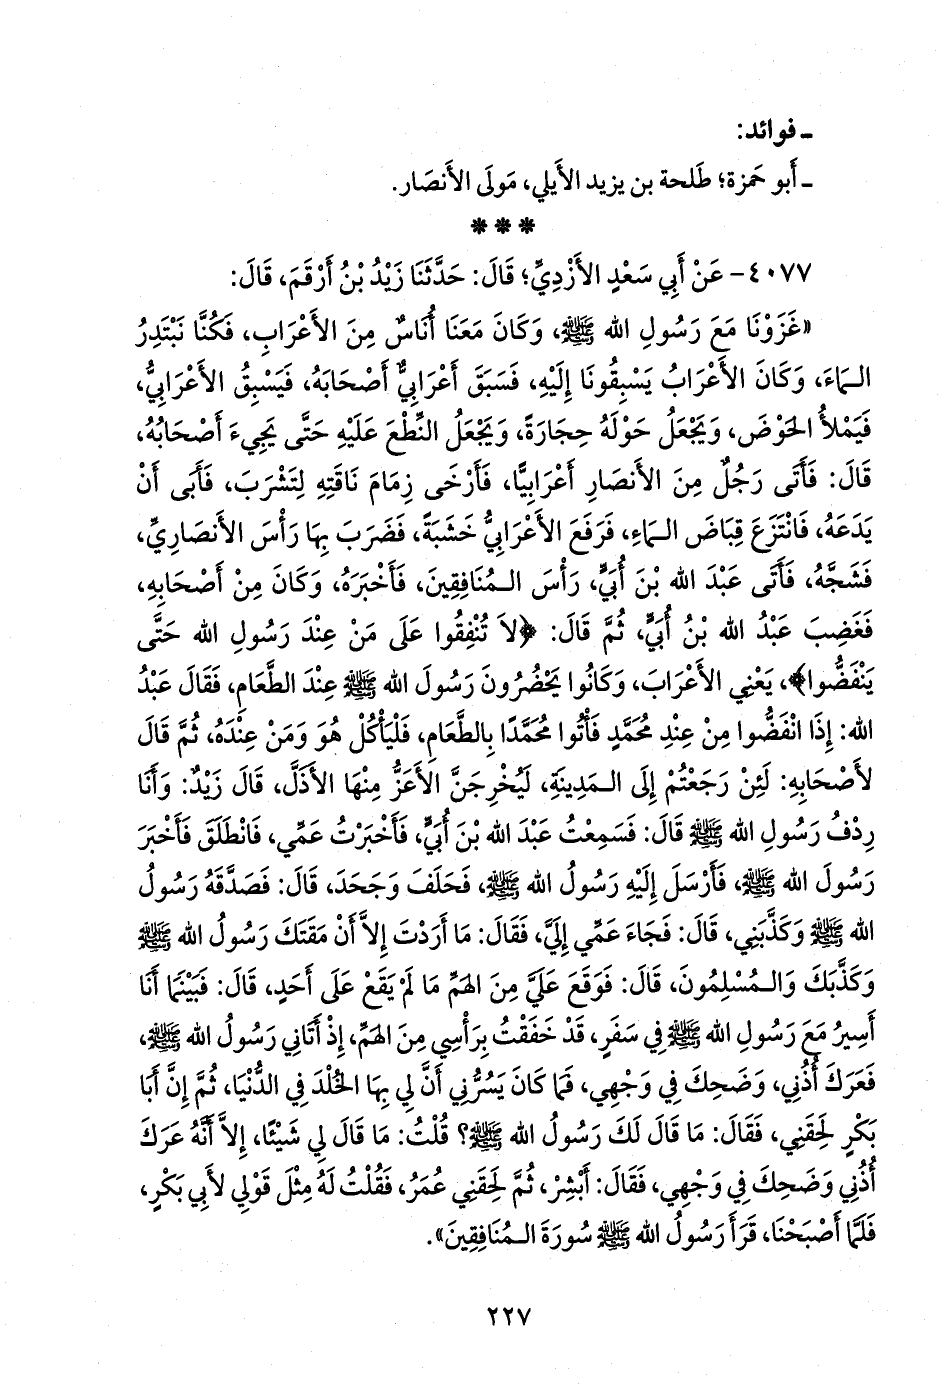 ـ فوائد:
ـ أَبو حَمزة؛ طَلحة بن يزيد الأَيلي، مَولَى الأَنصَار.
* * *
٤٠٧٧- عَنْ أَبِي سَعْدٍ الأَزْدِيِّ؛ قَالَ: حَدَّثَنَا زَيْدُ بْنُ أَرْقَمَ، قَالَ:
«غَزَوْنَا مَعَ رَسُولِ الله ﷺ، وَكَانَ مَعَنَا أُنَاسٌ مِنَ الأَعْرَابِ، فَكُنَّا نَبْتَدِرُ
الـمَاءَ، وَكَانَ الأَعْرَابُ يَسْبِقُونَا إِلَيْهِ، فَسَبَقَ أَعْرَابِيٌّ أَصْحَابَهُ، فَيَسْبِقُ الأَعْرَابِيُّ،
فَيَمْلأُ الحَوْضَ، وَيَجْعَلُ حَوْلَهُ حِجَارَةً، وَيَجْعَلُ النِّطْعَ عَلَيْهِ حَتَّى يَجِيءَ أَصْحَابُهُ،
قَالَ: فَأَتَى رَجُلٌ مِنَ الأَنصَارِ أَعْرَابِيًّا، فَأَرْخَى زِمَامَ نَاقَتِهِ لِتَشْرَبَ، فَأَبَى أَنْ
يَدَعَهُ، فَانْتَزَعَ قِبَاضَ الـمَاءِ، فَرَفَعَ الأَعْرَابِيُّ خَشَبَةً، فَضَرَبَ بِهَا رَأْسَ الأَنصَارِيِّ،
فَشَجَّهُ، فَأَتَى عَبْدَ الله بْنَ أُبَيٍّ، رَأْسَ الـمُنَافِقِينَ، فَأَخْبَرَهُ، وَكَانَ مِنْ أَصْحَابِهِ،
فَغَضِبَ عَبْدُ الله بْنُ أُبَيٍّ، ثُمَّ قَالَ: ﴿لاَ تُنْفِقُوا عَلَى مَنْ عِنْدَ رَسُولِ الله حَتَّى
يَنْفَضُّوا﴾، يَعْنِي الأَعْرَابَ، وَكَانُوا يَحْضُرُونَ رَسُولَ الله ﷺ عِنْدَ الطَّعَامِ، فَقَالَ عَبْدُ
الله: إِذَا انْفَضُّوا مِنْ عِنْدِ مُحَمَّدٍ فَأْتُوا مُحَمَّدًا بِالطَّعَامِ، فَلْيَأْكُلْ هُوَ وَمَنْ عِنْدَهُ، ثُمَّ قَالَ
لأَصْحَابِهِ: لَئِنْ رَجَعْتُمْ إِلَى الـمَدِينَةِ، لَيُخْرِجَنَّ الأَعَزُّ مِنْهَا الأَذَلَّ، قَالَ زَيْدٌ: وَأَنَا
رِدْفُ رَسُولِ الله ﷺ قَالَ: فَسَمِعْتُ عَبْدَ الله بْنَ أُبَيٍّ، فَأَخْبَرْتُ عَمِّي، فَانْطَلَقَ فَأَخْبَرَ
رَسُولَ الله ﷺ، فَأَرْسَلَ إِلَيْهِ رَسُولُ الله ﷺ، فَحَلَفَ وَجَحَدَ، قَالَ: فَصَدَّقَهُ رَسُولُ
الله ﷺ وَكَذَّبَنِي، قَالَ: فَجَاءَ عَمِّي إِلَيَّ، فَقَالَ: مَا أَرَدْتَ إِلاَّ أَنْ مَقَتَكَ رَسُولُ الله ﷺ
وَكَذَّبَكَ وَالـمُسْلِمُونَ، قَالَ: فَوَقَعَ عَلَيَّ مِنَ الهَمِّ مَا لَمْ يَقَعْ عَلَى أَحَدٍ، قَالَ: فَبَيْنَمَا أَنَا
أَسِيرُ مَعَ رَسُولِ الله ﷺ فِي سَفَرٍ، قَدْ خَفَقْتُ بِرَأْسِي مِنَ الهَمِّ، إِذْ أَتَانِي رَسُولُ الله ﷺ،
فَعَرَكَ أُذُنِي، وَضَحِكَ فِي وَجْهِي، فَمَا كَانَ يَسُرُّنِي أَنَّ لِي بِهَا الخُلْدَ فِي الدُّنْيَا، ثُمَّ إِنَّ أَبَا
بَكْرٍ لَحِقَنِي، فَقَالَ: مَا قَالَ لَكَ رَسُولُ الله ﷺ؟ قُلْتُ: مَا قَالَ لِي شَيْئًا، إِلاَّ أَنَّهُ عَرَكَ
أُذُنِي وَضَحِكَ فِي وَجْهِي، فَقَالَ: أَبْشِرْ، ثُمَّ لَحِقَنِي عُمَرُ، فَقُلْتُ لَهُ مِثْلَ قَوْلِي لأَبِي بَكْرٍ،
فَلَمَّا أَصْبَحْنَا، قَرَأَ رَسُولُ الله ﷺ سُورَةَ الـمُنَافِقِينَ».
٢٢٧